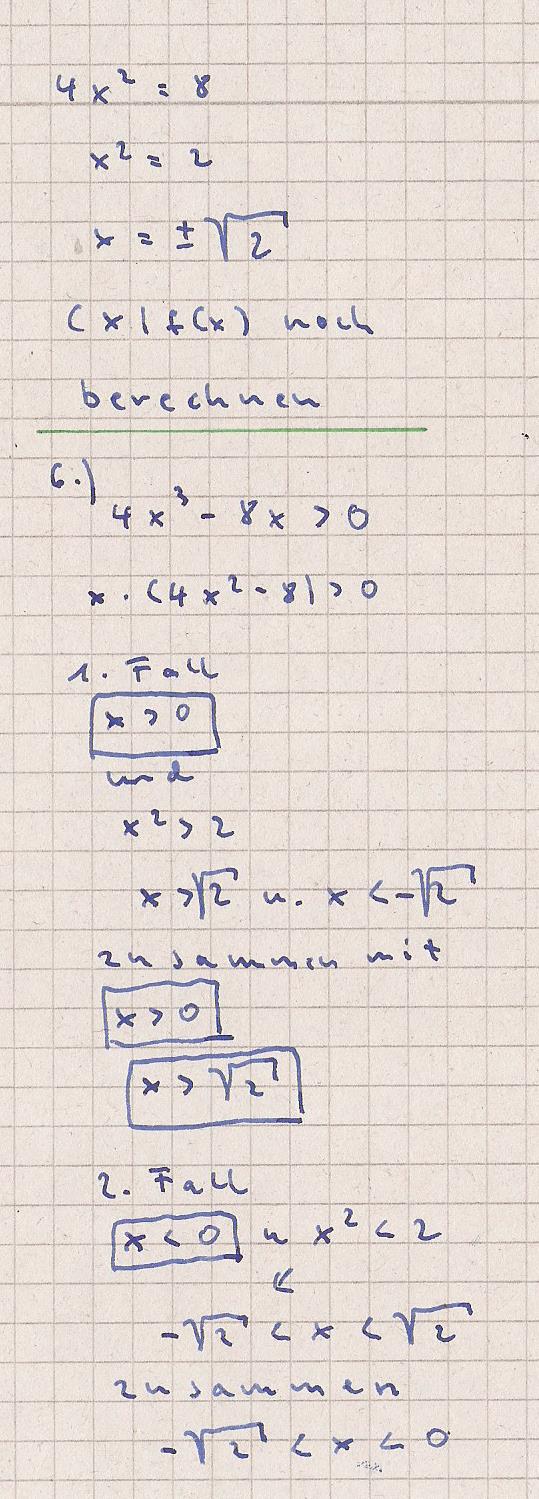 4x² = 8
x² = 2
x = ±√2
(x | f(x) noch
berechnen
6.)
4x³ - 8x > 0
x · (4x² - 8) > 0
1. Fall
x > 0
und
x² > 2
x > √2 u. x < -√2
zusammen mit
x > 0
x > √2
2. Fall
x < 0 u x² < 2
-√2 < x < √2
zusammen
-√2 < x < 0